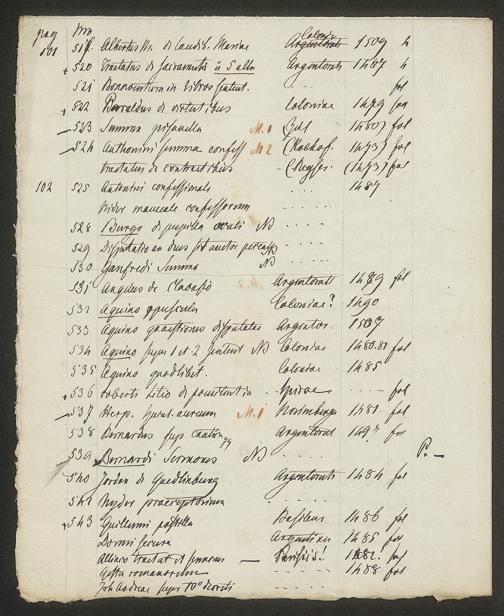 pag Nro
101 517. Albertus M. de laudib. Mariae Coloniae Argentorati 1509 4
520 Tractatus de sacramentis u 5 alia Argentorati 1487 4
521 Bonaventura in libros sentent. . . . . fol
522 Peraldus de virtutibus Coloniae 1479 fol
523 Summa pisanella M. 1 (Zel 1480) fol
524 Anthonini summa confess M 2 (Koelhof. 1473) fol
tractatus de contractibus (Keyser. (1473) fol
102 525 Antonini confessionale . . . . 1487
Nider manuale confessorum . . . .
528 Burgo de pupilla oculi ND . . . .
529 Disputatio an duos sit auctor peccati ND . . . .
530 Ganfredi Summa ND . . . .
531 Angelus de Clavasio Argentorati 1489 fol
532 Aquino opuscula Coloniae? 1490
533 Aquino quaestiones disputatae Argentor. 1507
534 Aquino super 1 et 2 sentent ND Coloniae 1480.81 fol
535 Aquino quodlibet. Coloniae 1485
536 roberti Litio de poenitentia . . Spirae . . . . fol
537 Herp. specul. aureum M. 1 Norimbergae 1481. fol
538 Bernardus sup cantica Argentorat 1497 fol
539 Bernardi Sermones ND . . . . P. —
540 Jordan de Quedlinburg Argentorati 1484 fol
541 Nyder praeceptorium . . . .
543 Guillermi postilla Basileae 1486 fol
Dormi secure Argentinae 1485 fol
tractat et sermones — Parisiis! 1482! fol
Gesta romanorum . . . . 1488 fol
Joh Andreae super